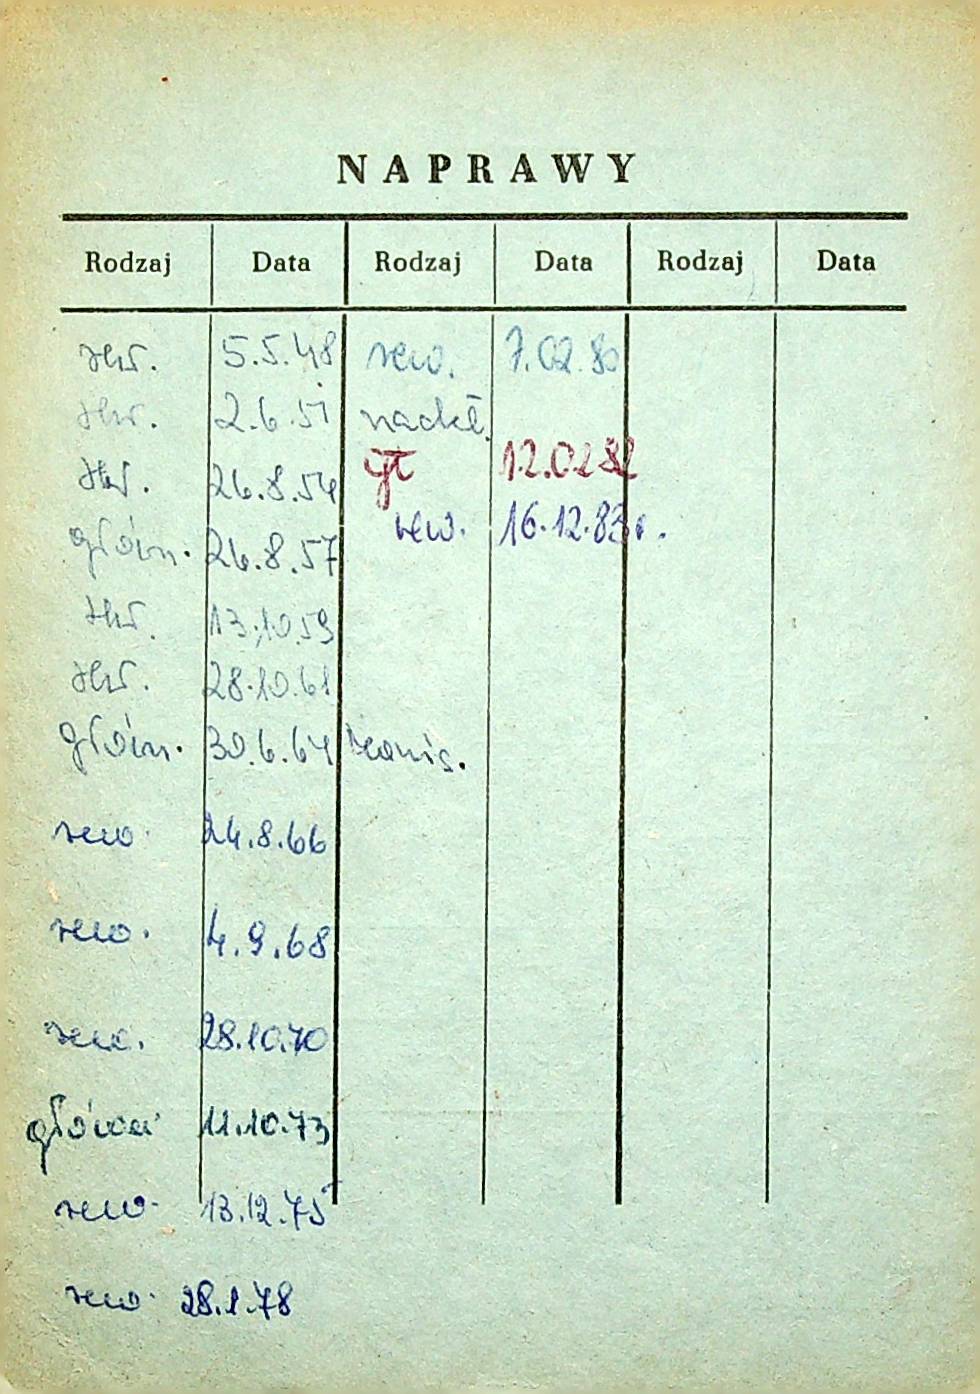 NAPRAWY
Rodzaj Data Rodzaj Data Rodzaj Data
śred. 5.5.48 rew. 7.02.80
2.6.51 nadkł.
26.8.54 12.02.82
główn. 26.8.57 rew. 16.12.83r.
13.10.59
28.10.61
główn. 30.6.64
rew. 24.8.66
rew. 4.9.68
rew. 28.10.70
główna 11.10.73
rew. 13.12.75
rew. 28.1.78